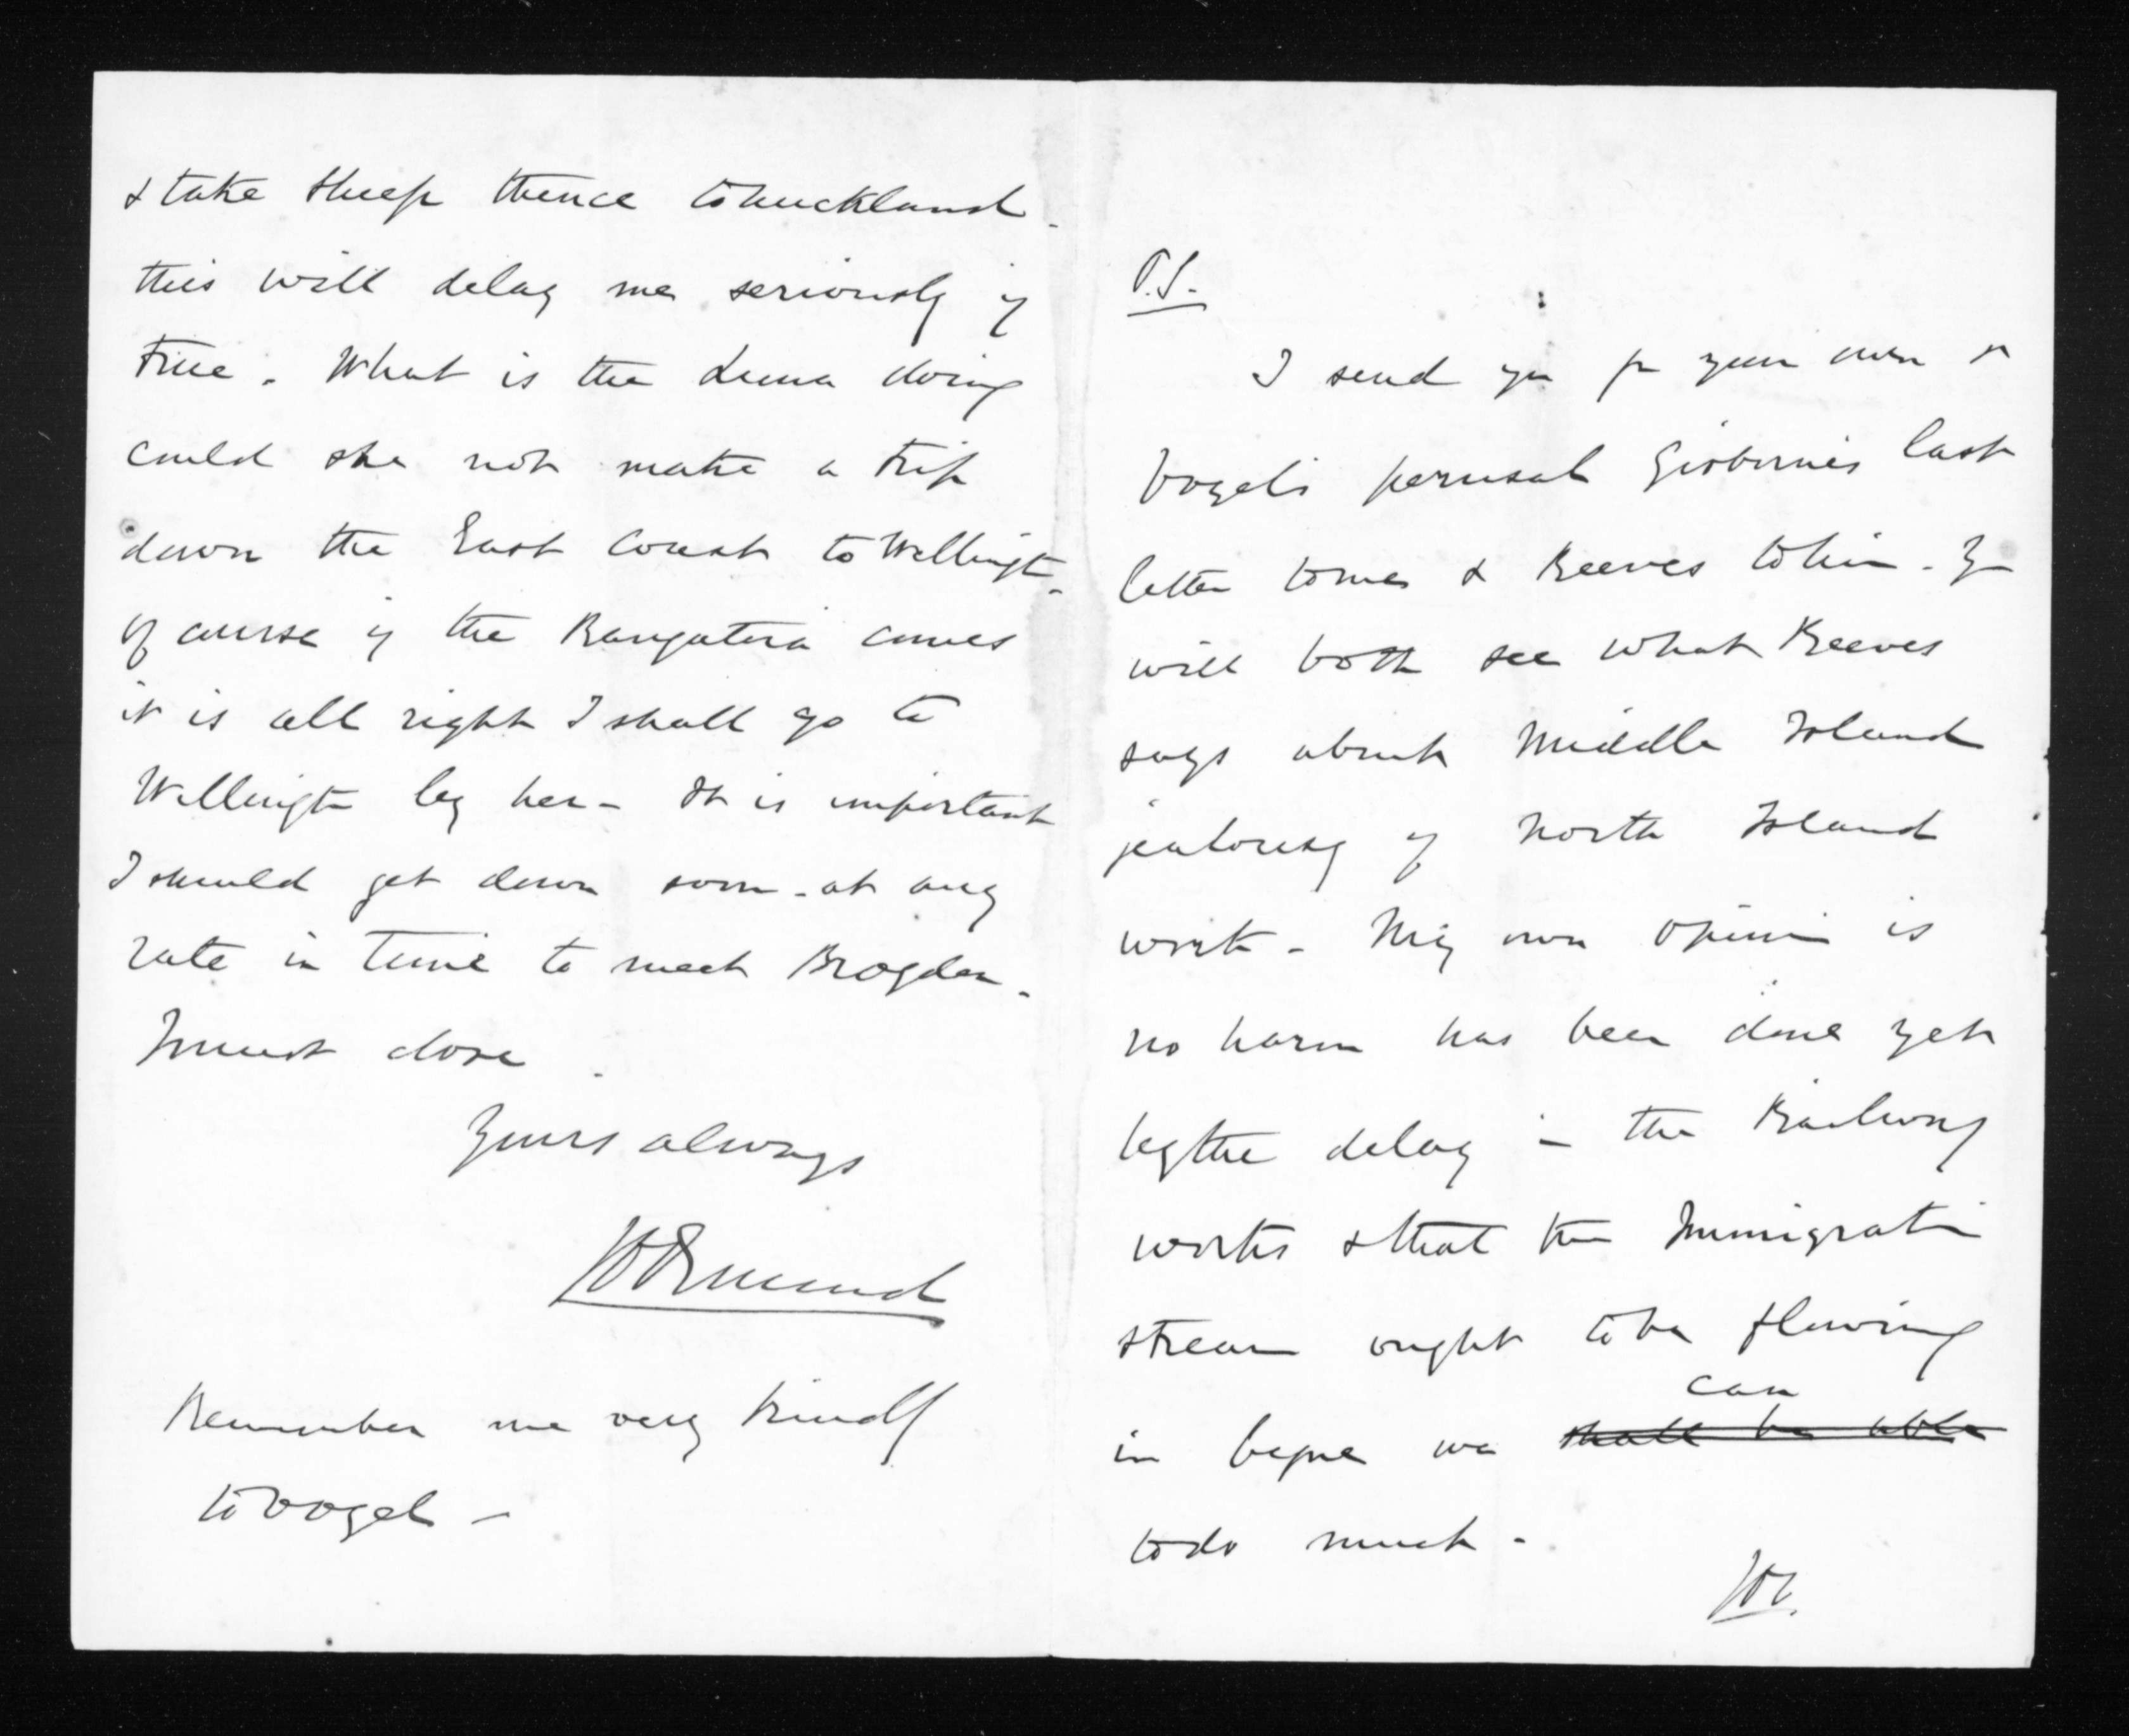 & take sheep thence to Auckland.
this will delay me seriously if
true. What is the Luna doing
could she not make a trip
down the East Coast to Wellingt.
Of course if the Rangatira comes
it is all right I shall go to
Wellingt by her - It is important
I should get down soon - at any
rate in time to meet Brogden.
I must close.
Yours always
J D Ormond
Remember me very kindly
to Vogel -
P.S.
I send you for your own &
Vogel's perusal Gisborne's last
letter to me & Reeves to him. You
will both see what Reeves
says about Middle Island
jealousy of North Island
work - My own opinion is
no harm has been done yet
by the delay in the Railway
works & that the Immigration
stream ought to be flowing
in before we ~~shall be able~~ can
to do much -
JDO.